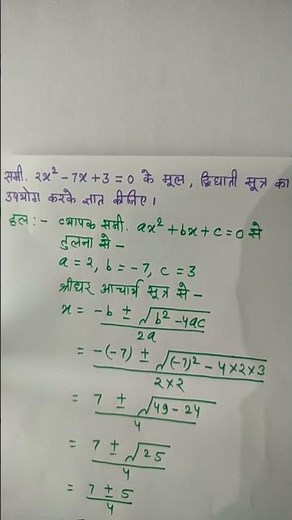 समी. 2x² - 7x + 3 = 0 के मूल, द्विघाती सूत्र का
उपयोग करके ज्ञात कीजिए।
हल :- व्यापक समी. ax² + bx + c = 0 से
तुलना से -
a = 2, b = -7, c = 3
श्रीधर आचार्य सूत्र से -
x = -b ± √b² - 4ac / 2a
= -(-7) ± √(-7)² - 4×2×3 / 2×2
= 7 ± √49 - 24 / 4
= 7 ± √25 / 4
= 7 ± 5 / 4